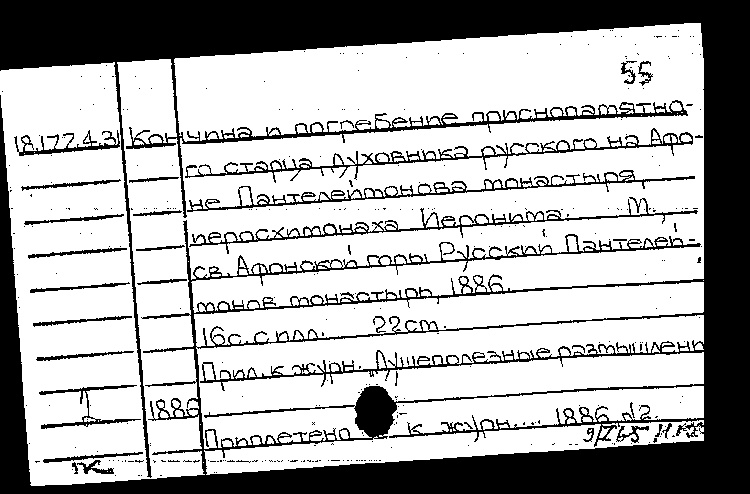 55
18.177.4.3 Кончина и погребение приснопамятно-
го старца, духовника русского на Афо-
не Пантелеймонова монастыря,
иеросхимонаха Иеронима. М.,
св. Афонской горы Русский Пантелей-
монов монастырь, 1886.
16с. с илл. 22см.
Прил. к журн. „Душеполезные размышлени
1886.
Приплетено к журн.... 1886 №2.